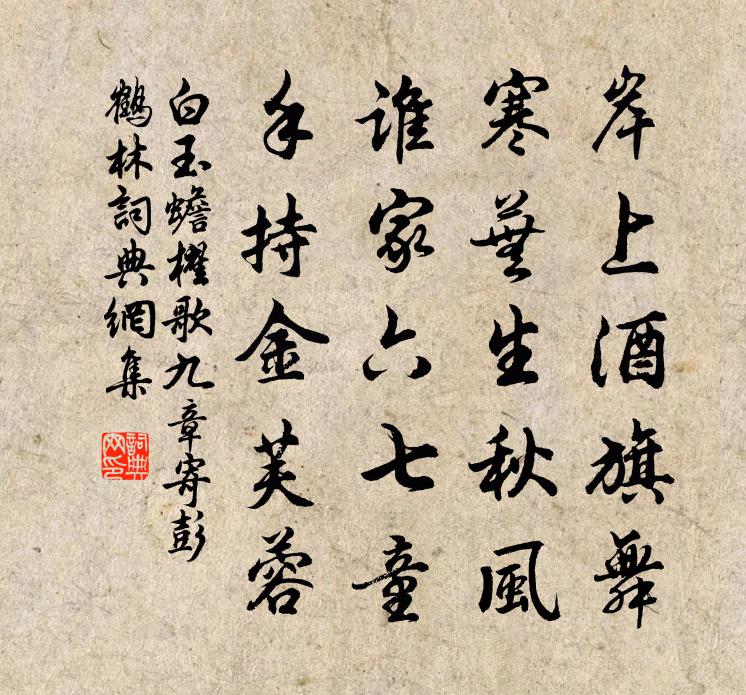 岸上酒旗舞
寒蕪生秋風
誰家六七童
手持金芙蓉
白玉蟾櫂歌九章寄彭
鶴林詞典網集
詞典
网印